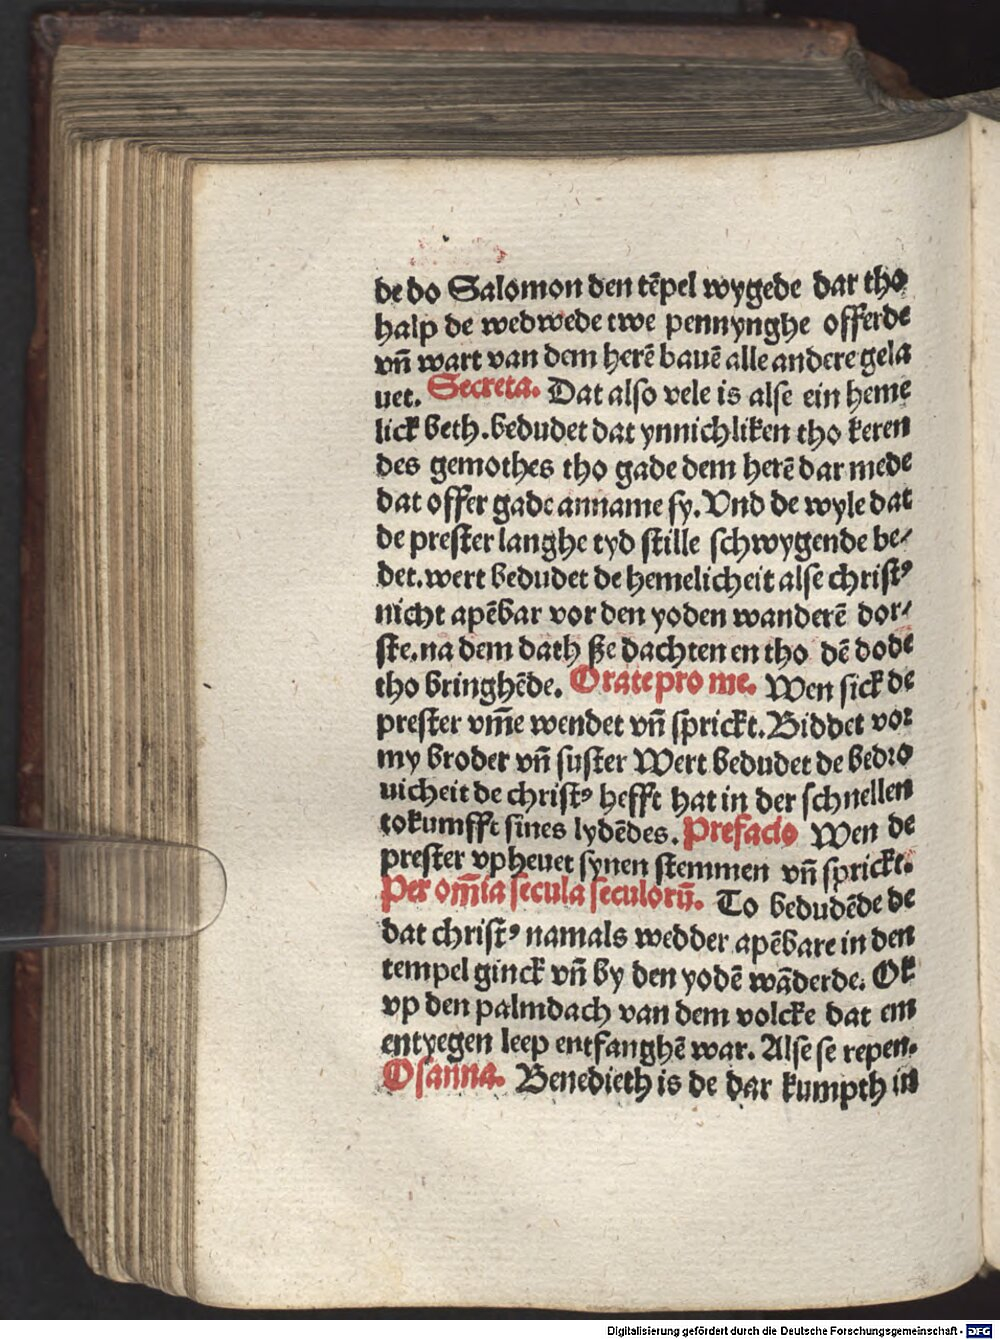 de do Salomon den tēpel wygede dar tho
halp de wedwede twe pennynghe offerde
vn̄ wart van dem herē bauē alle andere gela
uet. Secreta. Dat also vele is alse ein heme
lick beth. bedudet dat ynnichliken tho keren
des gemothes tho gade dem herē dar mede
dat offer gade anname sy. Vnd de wyle dat
de prester langhe tyd stille schwygende be⸗
det. wert bedudet de hemelicheit alse christꝰ
nicht apēbar vor den yoden wanderē dor⸗
ste. na dem dath ße dachten en tho dē dode
tho bringhēde. Orate pro me. Wen sick de
prester vm̄e wendet vn̄ sprickt. Biddet vor
my broder vn̄ suster Wert bedudet de bedro
uicheit de christꝰ hefft hat in der schnellen
tokumfft sines lydēdes. Prefacio Wen de
prester vpheuet synen stemmen vn̄ sprickt.
Per om̄ia secula seculorū. To bedudēde de
dat christꝰ namals wedder apēbare in den
tempel ginck vn̄ by den yodē wāderde. Ok
vp den palmdach van dem volcke dat em
entyegen leep entfanghē war. Alse se repen.
Osanna. Benedieth is de dar kumpth in
Digitalisierung gefördert durch die Deutsche Forschungsgemeinschaft - DFG